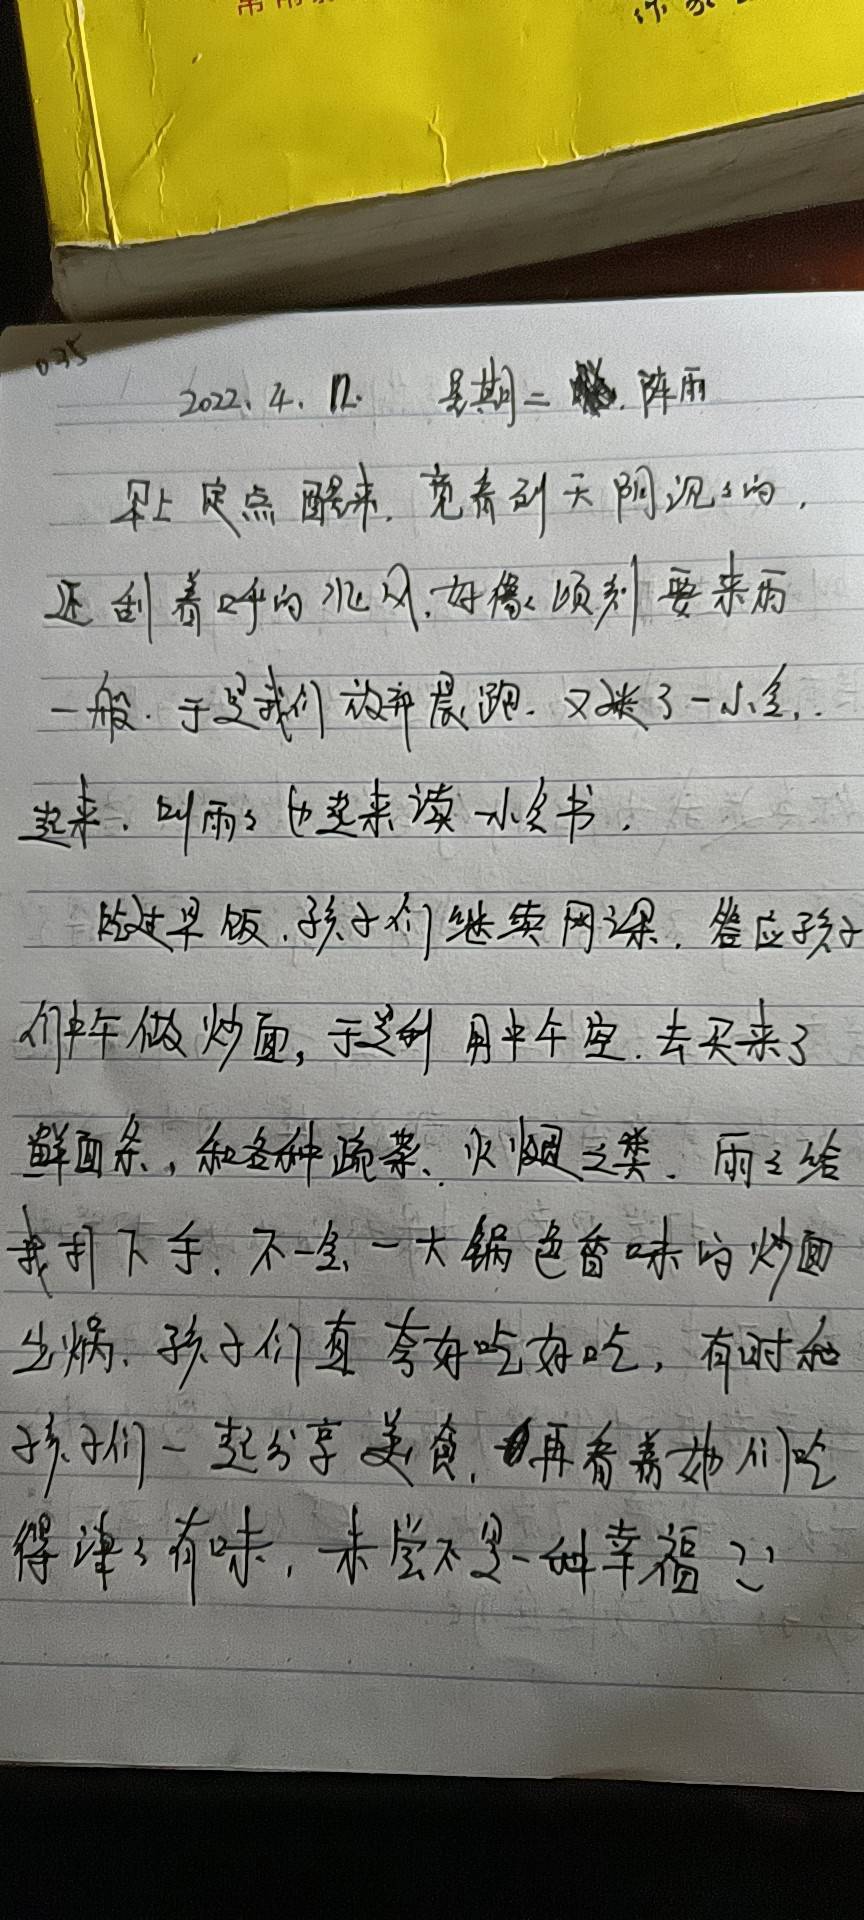 035
2022.4.12. 星期二 阵雨
早上定点醒来,竟看到天阴沉沉的,
还刮着呼呼的北风,好像顷刻要来雨
一般.于是我们放弃晨跑.又迷了一小会.
起来.叫雨雨也起来读一小会书.
吃过早饭.孩子们继续网课.答应孩子
们中午做炒面,于是利用中午空.去买来了
鲜面条,和各种蔬菜、火烟之类.雨雨给
我打下手.不一会一大锅色香味的炒面
出锅.孩子们直夸好吃好吃,有时和
孩子们一起分享美食,再看着她们吃
得津津有味,未尝不是一种幸福